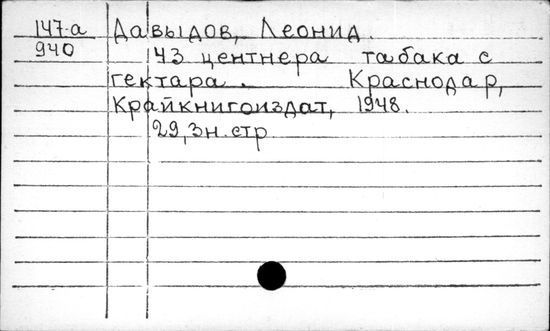 147-а Давыдов, Леонид.
940 43 центнера табака с
гектара. Краснодар,
Крайкнигоиздат, 1948.
29,3н.стр